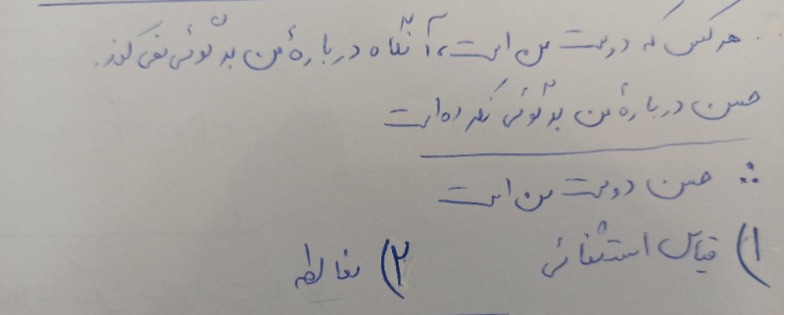 هر کس که دوست من است، آنگاه درباره من بدگوئی نمی کند.
حسن درباره من بدگوئی نکرده است
∴ حسن دوست من است
۱) قیاس استثنائی ۲) مغالطه